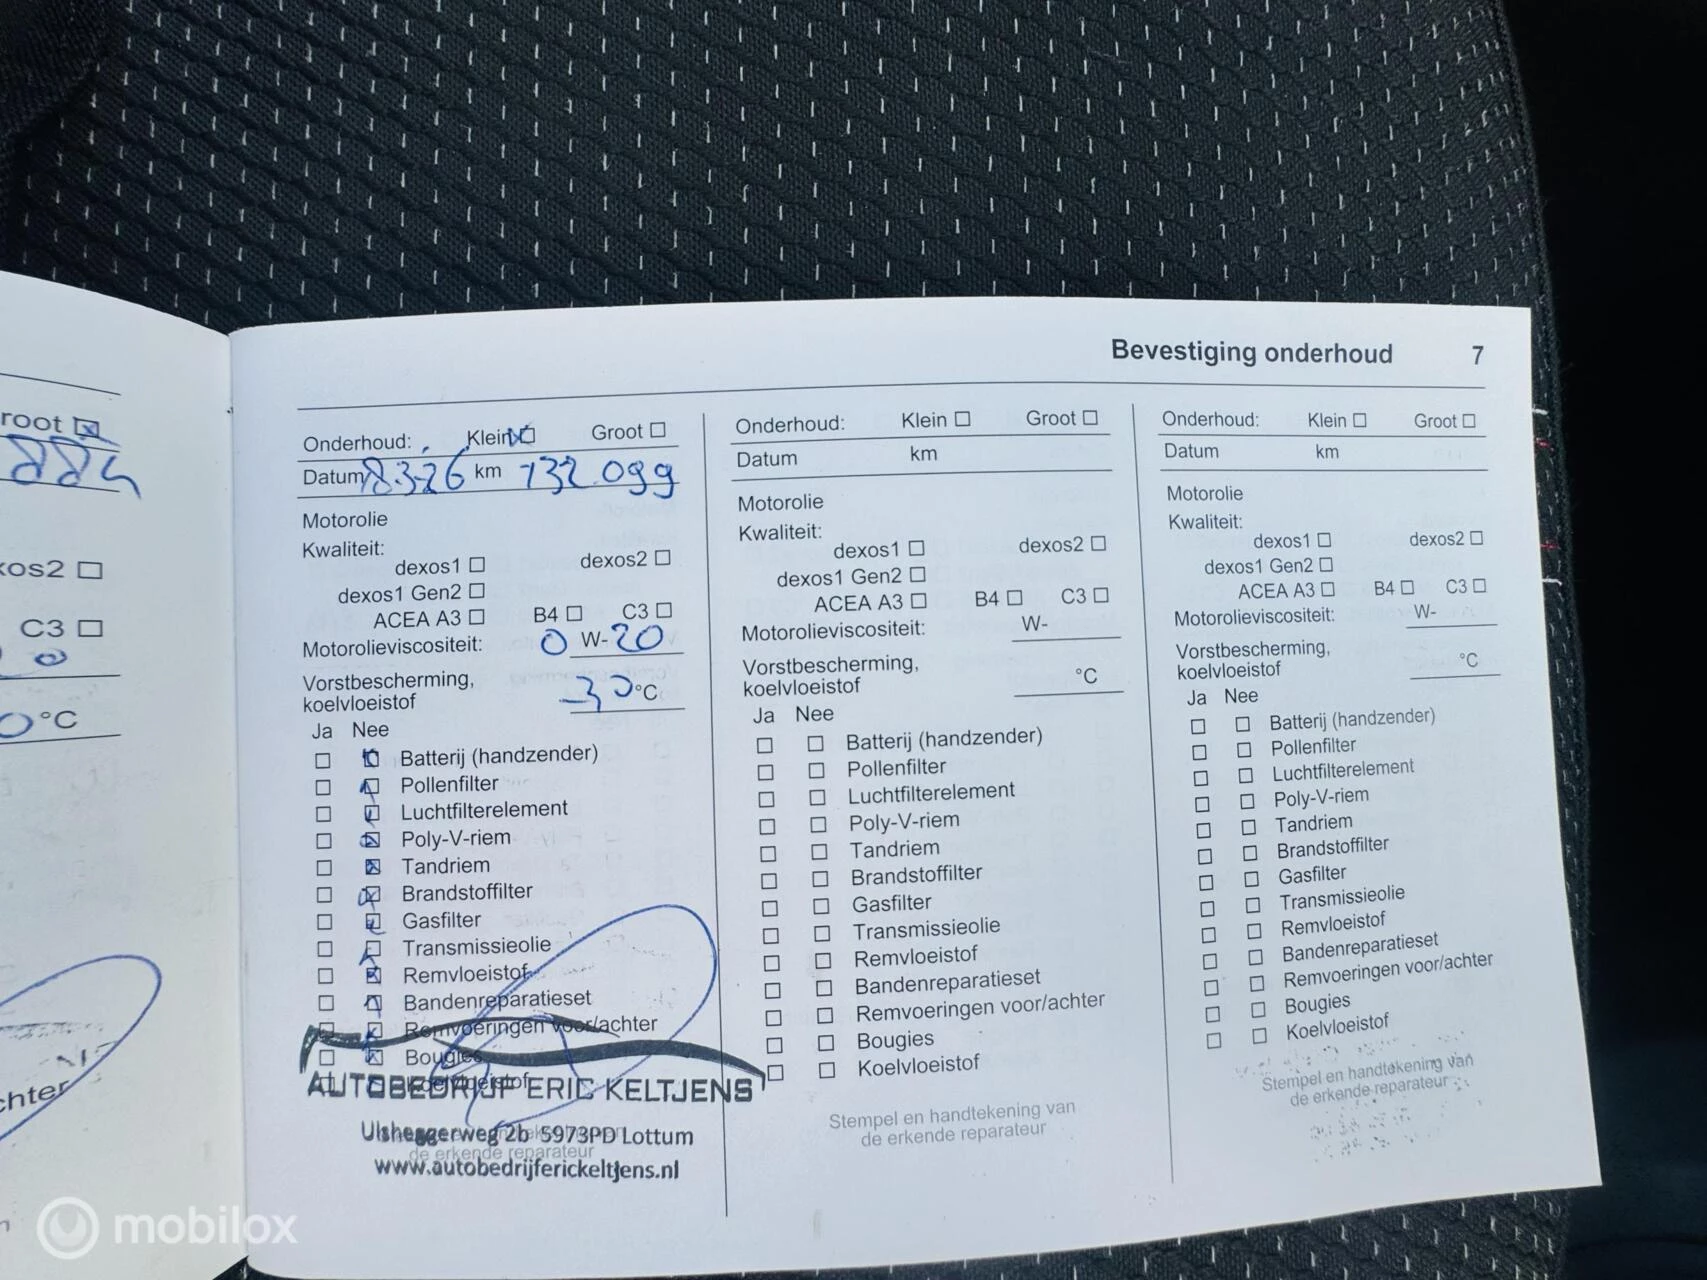 root
Bevestiging onderhoud 7
Onderhoud: Klein Groot
Datum 18.3.26 km 132.099
Motorolie
Kwaliteit:
dexos1 dexos2
dexos1 Gen2
ACEA A3 B4 C3
Motorolieviscositeit: 0 W-20
Vorstbescherming,
koelvloeistof -30 °C
Ja Nee
Batterij (handzender)
Pollenfilter
Luchtfilterelement
Poly-V-riem
Tandriem
Brandstoffilter
Gasfilter
Transmissieolie
Remvloeistof
Bandenreparatieset
Remvoeringen voor/achter
Bougies
Koelvloeistof
AUTOBEDRIJF ERIC KELTJENS
Ulsheggerweg 2b 5973PD Lottum
de erkende reparateur
www.autobedrijferickeltjens.nl
Onderhoud: Klein Groot
Datum km
Motorolie
Kwaliteit:
dexos1 dexos2
dexos1 Gen2
ACEA A3 B4 C3
Motorolieviscositeit: W-
Vorstbescherming,
koelvloeistof °C
Ja Nee
Batterij (handzender)
Pollenfilter
Luchtfilterelement
Poly-V-riem
Tandriem
Brandstoffilter
Gasfilter
Transmissieolie
Remvloeistof
Bandenreparatieset
Remvoeringen voor/achter
Bougies
Koelvloeistof
Stempel en handtekening van
de erkende reparateur
Onderhoud: Klein Groot
Datum km
Motorolie
Kwaliteit:
dexos1 dexos2
dexos1 Gen2
ACEA A3 B4 C3
Motorolieviscositeit: W-
Vorstbescherming,
koelvloeistof °C
Ja Nee
Batterij (handzender)
Pollenfilter
Luchtfilterelement
Poly-V-riem
Tandriem
Brandstoffilter
Gasfilter
Transmissieolie
Remvloeistof
Bandenreparatieset
Remvoeringen voor/achter
Bougies
Koelvloeistof
Stempel en handtekening van
de erkende reparateur
xos2
C3
0 °C
chter
mobilox